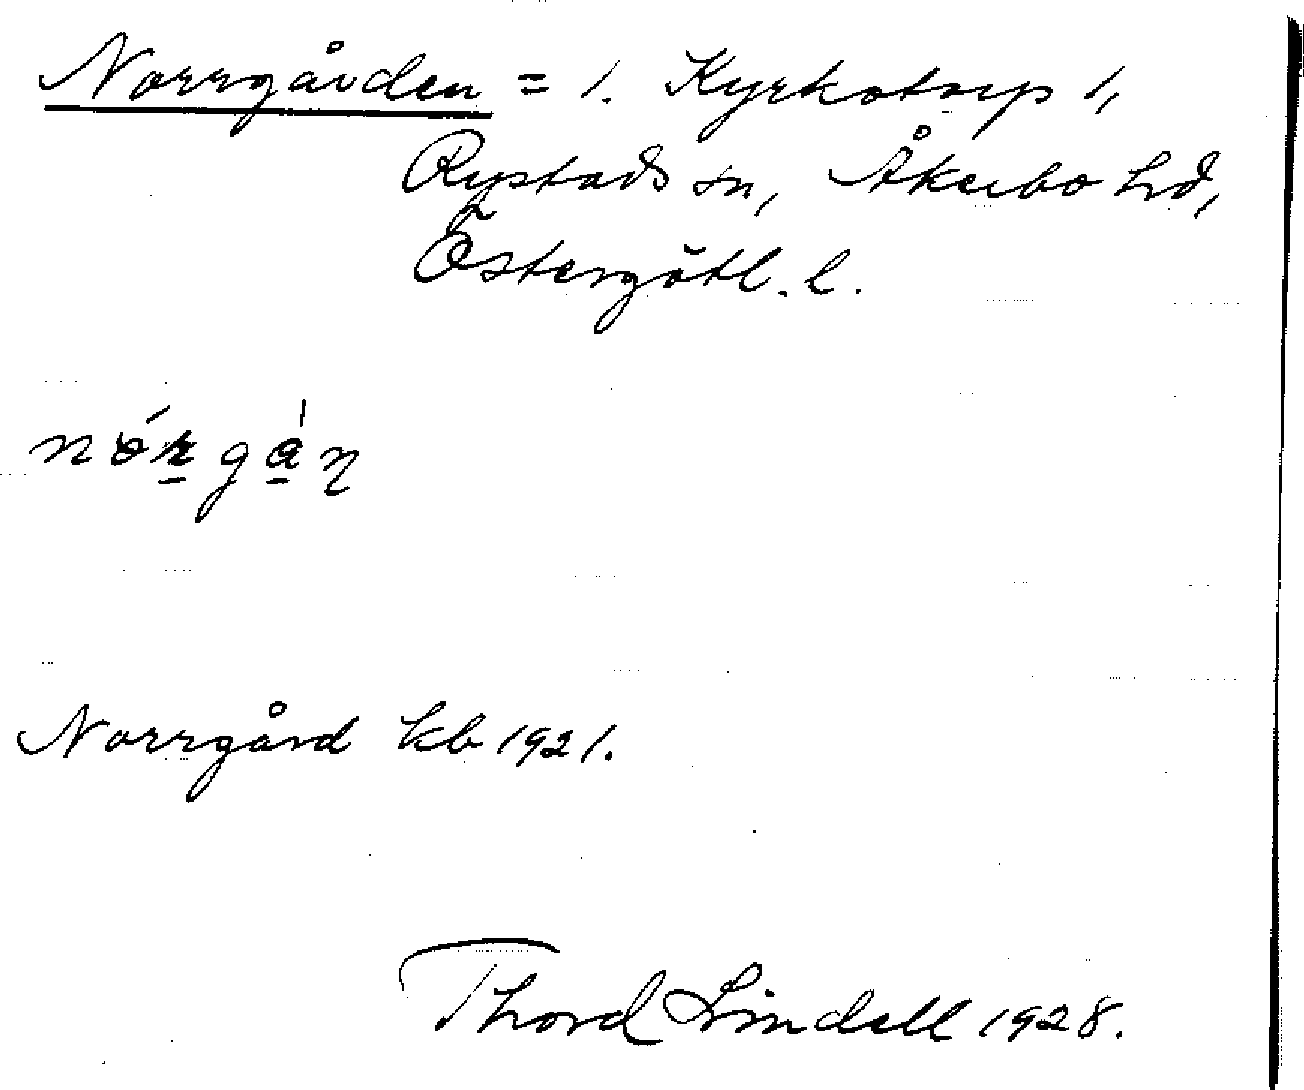 Norrgården = 1. Kyrkotorp 1,
Rystads sn, Åkerbo hd,
Östergötl. l.
Norrgård kb 1921.
Thord Lindell 1928.